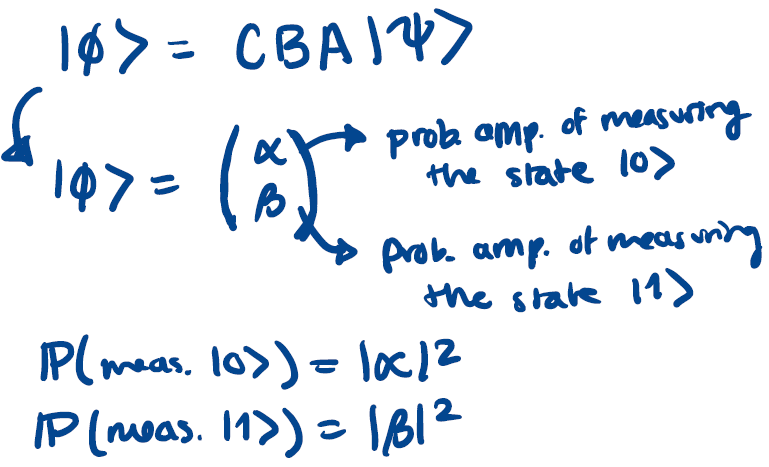 |ϕ> = CBA|Ψ>
|ϕ> = (α β)
prob. amp. of measuring
the state |0>
prob. amp. of measuring
the state |1>
ℙ(meas. |0>) = |α|²
ℙ(meas. |1>) = |β|²